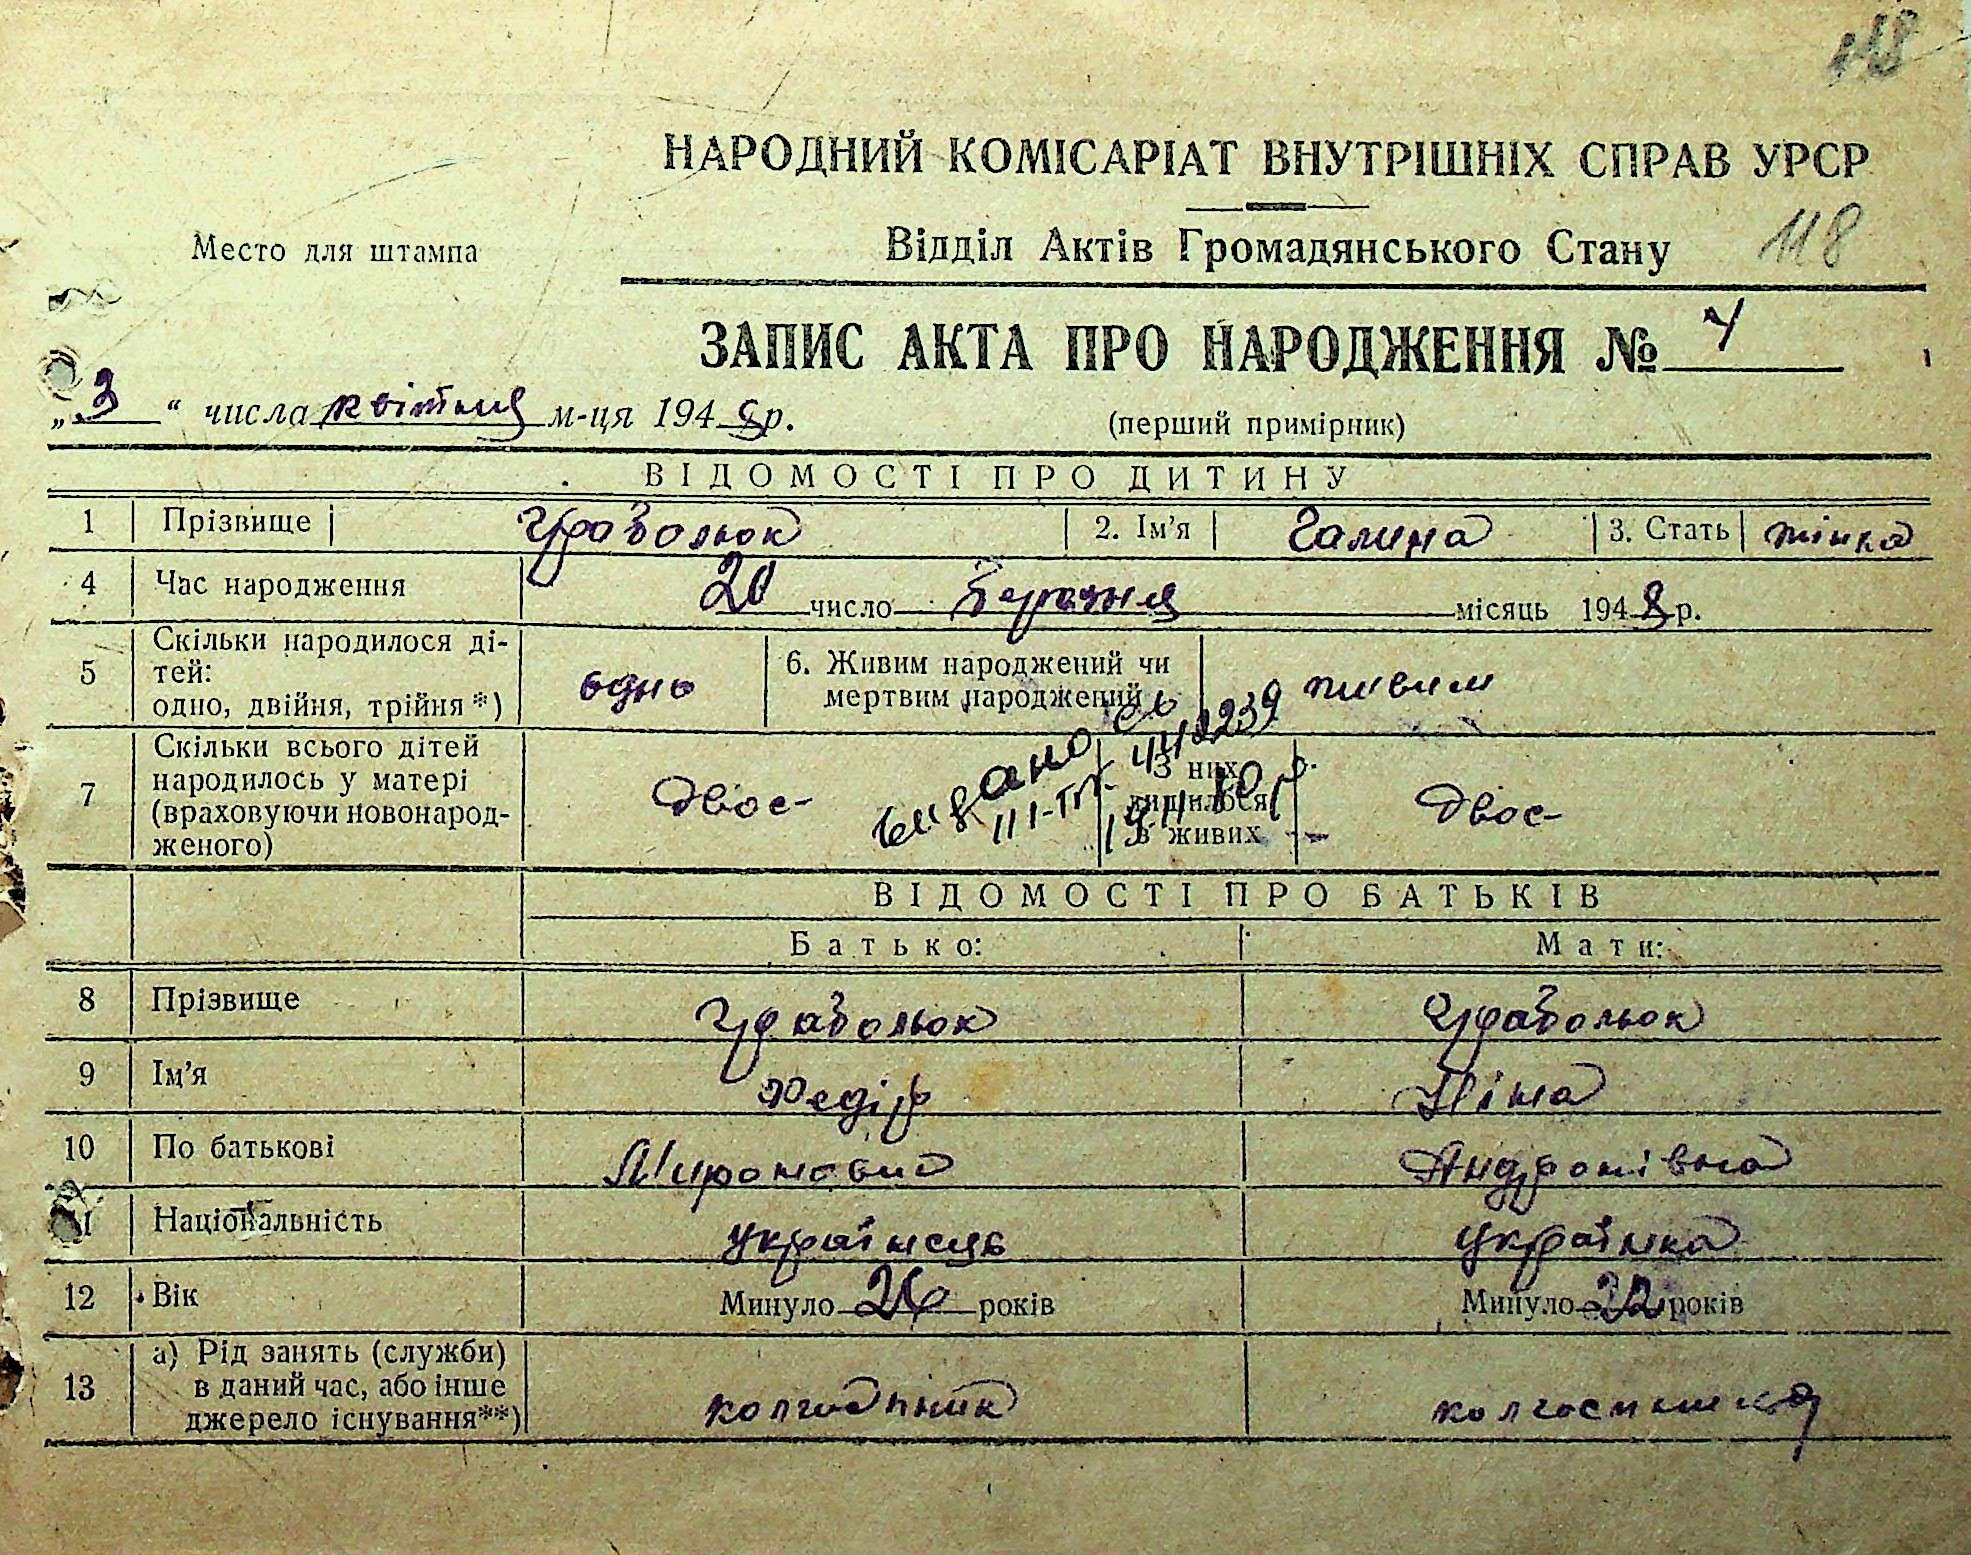 118
НАРОДНИЙ КОМІСАРІАТ ВНУТРІШНІХ СПРАВ УРСР
Место для штампа
Відділ Актів Громадянського Стану 118
ЗАПИС АКТА ПРО НАРОДЖЕННЯ №
„3“ числа квітня м-ця 194 р.
(перший примірник)
ВІДОМОСТІ ПРО ДИТИНУ
1 Прізвище 2. Ім’я Галина 3. Стать жінка
4 Час народження 20 число березня місяць 1948 р.
5 Скільки народилося дітей: одно, двійня, трійня *) одно 6. Живим народжений чи мертвим народжений живим
7 Скільки всього дітей народилось у матері (враховуючи новонародженого) двоє З них лишилося в живих двоє
видано св
III-ТП
ВІДОМОСТІ ПРО БАТЬКІВ
Батько: Мати:
8 Прізвище
9 Ім’я Федір Ніна
10 По батькові Миронович Андронівна
11 Національність українець українка
12 Вік Минуло 26 років Минуло років
13 а) Рід занять (служби) в даний час, або інше джерело існування**) колгоспник колгоспниця